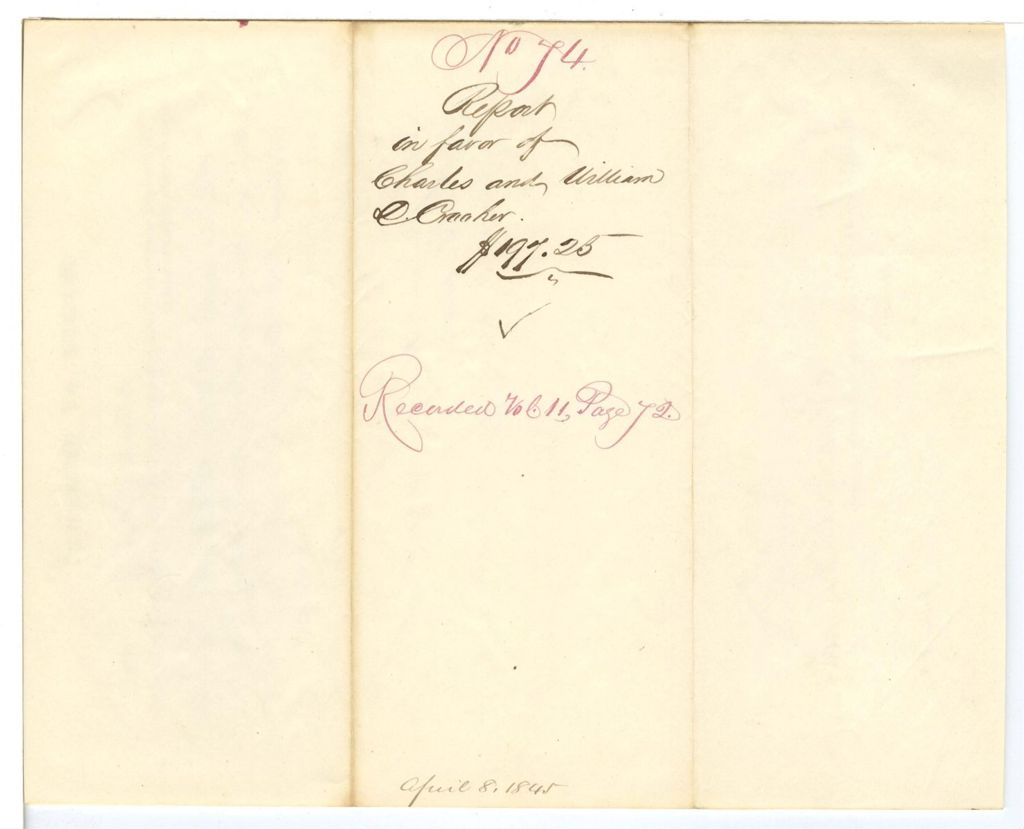 No 74.
Report
in favor of
Charles and William
C. Crocker.
$197.25
Recorded Vol. 11, Page 72.
April 8, 1845